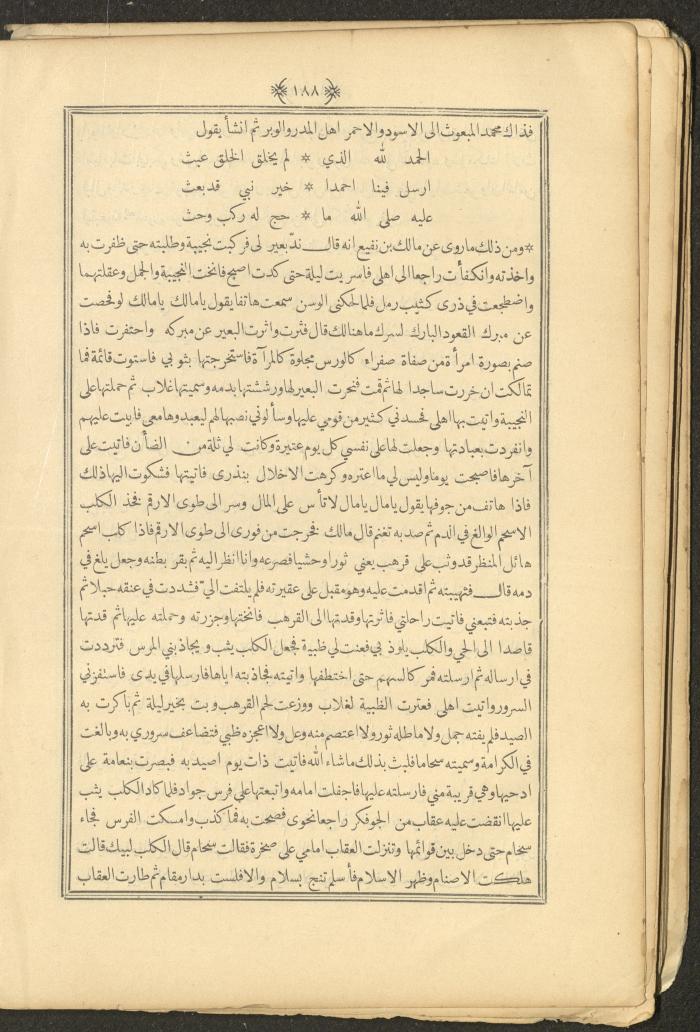 ١٨٨
فذاك محمد المبعوث الى الاسود والاحمر اهل المدر والوبر ثم انشأ يقول
الحمد لله الذي * لم يخلق الخلق عبث
ارسل فينا احمدا * خير نبي قد بعث
عليه صلى الله ما * حج له ركب وحث
* ومن ذلك ما روى عن مالك بن نفيع انه قال ندّ بعير لى فركبت نجيبة وطلبته حتى ظفرت به
واخذته وانكفأت راجعا الى اهلى فاسريت ليلة حتى كدت اصبح فانخت النجيبة والجمل وعقلتهما
واضطجعت في ذرى كثيب رمل فلما كحلنى الوسن سمعت هاتفا يقول يا مالك يا مالك لو فحصت
عن مبرك القعود البارك لسرك ما هنالك قال فثرت واثرت البعير عن مبركه واحتفرت فاذا
صنم بصورة امرأة من صفاة صفراء كالورس مجلوة كالمرآة فاستخرجتها بثوبي فاستوت قائمة فما
تمالكت ان خررت ساجدا لها ثم قمت فنحرت البعير لها ورششتها بدمه وسميتها غلاب ثم حملتها على
النجيبة واتيت بها اهلى فحسدني كثير من قومي عليها وسألوني نصبها لهم ليعبدوها معي فابيت عليهم
وانفردت بعبادتها وجعلت لها على نفسي كل يوم عتيرة وكانت لي ثلة من الضأن فاتيت على
آخرها فاصبحت يوما وليس لي ما اعتره وكرهت الاخلال بنذرى فاتيتها فشكوت اليها ذلك
فاذا هاتف من جوفها يقول يا مال يا مال لا تأس على المال وسر الى طوى الارقم فخذ الكلب
الاسحم الوالغ في الدم ثم صد به تغنم قال مالك فخرجت من فورى الى طوى الارقم فاذا كلب اسحم
هائل المنظر قد وثب على قرهب يعني ثورا وحشيا فصرعه وانا انظر اليه ثم بقر بطنه وجعل يلغ في
دمه قال فتهيبته ثم اقدمت عليه وهو مقبل على عقيرته فلم يلتفت اليّ فشددت في عنقه حبلا ثم
جذبته فتبعني فاتيت راحلتي فاثرتها وقدتها الى القرهب فانختها وجزرته وحملته عليها ثم قدتها
قاصدا الى الحي والكلب يلوذ بي فعنت لي ظبية فجعل الكلب يشب ويجاذبني المرس فترددت
في ارساله ثم ارسلته فمر كالسهم حتى اختطفها واتيته فجاذبته اياها فارسلها في يدى فاستفزني
السرور واتيت اهلى فعترت الظبية لغلاب ووزعت لحم القرهب وبت بخير ليلة ثم باكرت به
الصيد فلم يفته جمل ولا ماطله ثور ولا اعتصم منه وعل ولا اعجزه ظبي فتضاعف سروري به وبالغت
في الكرامة وسميته سحاما فلبث بذلك ما شاء الله فاتيت ذات يوم اصيد به فبصرت بنعامة على
ادحيها وهي قريبة مني فارسلته عليها فاجفلت امامه واتبعتها على فرس جواد فلما كاد الكلب يثب
عليها انقضت عليه عقاب من الجو فكر راجعا نحوى فصحت به فما كذب وامسكت الفرس فجاء
سحام حتى دخل بين قوائمها وتنزلت العقاب امامي على صخرة فقالت سحام قال الكلب لبيك قالت
هلكت الاصنام وظهر الاسلام فأسلم تنج بسلام والا فلست بدار مقام ثم طارت العقاب